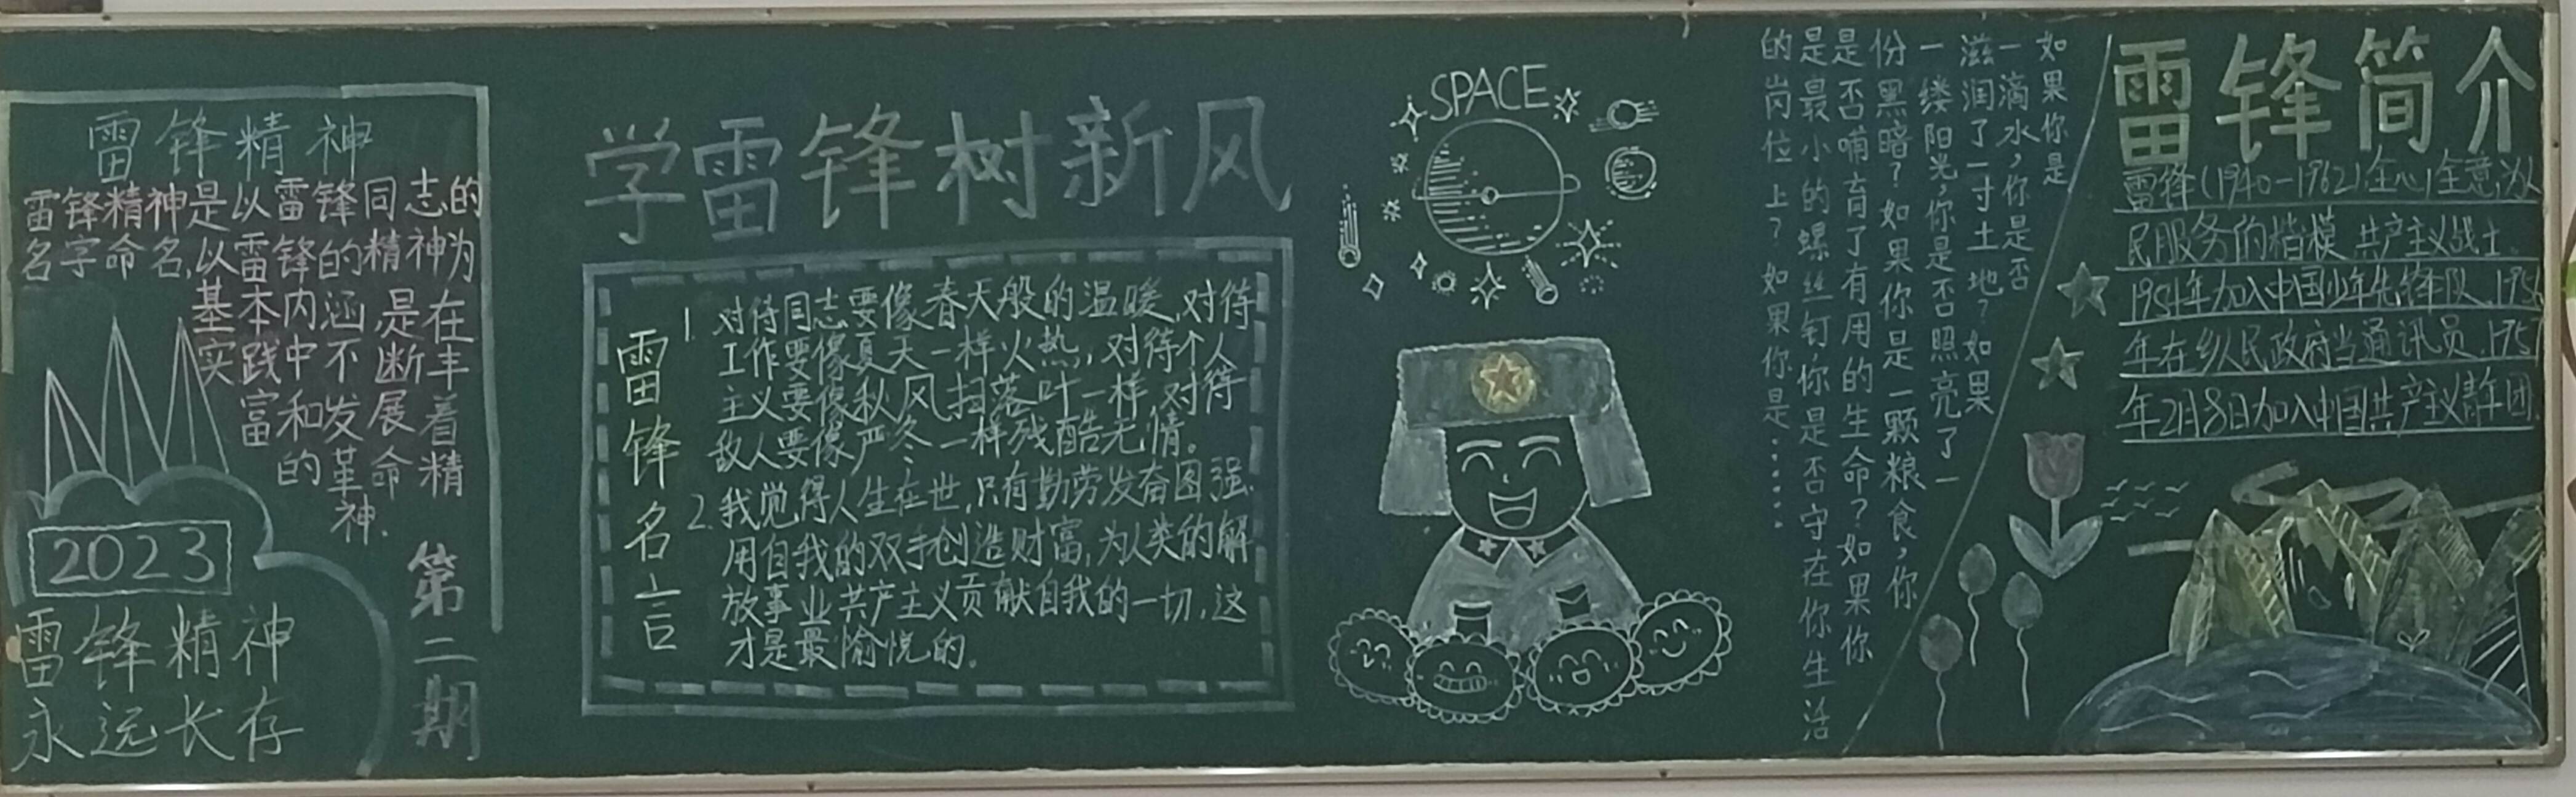 雷锋精神
雷锋精神是以雷锋同志的
名字命名,以雷锋的精神为
基本内涵是在
实践中不断丰
富和发展着
的革命精
神.
2023
雷锋精神
永远长存
第二期
学雷锋树新风
雷锋名言
1. 对待同志要像春天般的温暖,对待
工作要像夏天一样火热,对待个人
主义要像秋风扫落叶一样,对待
敌人要像严冬一样残酷无情。
2. 我觉得人生在世,只有勤劳发奋图强
用自我的双手创造财富,为人类的解
放事业共产主义贡献自我的一切,这
才是最愉悦的。
SPACE
如果你是
一滴水,你是否
滋润了一寸土地?如果
一缕阳光,你是否照亮了一
份黑暗?如果你是一颗粮食,你
是否哺育了有用的生命?如果你
是最小的螺丝钉,你是否守在你生活
的岗位上?如果你是……
雷锋简介
雷锋(1940-1962),全心全意为人
民服务的楷模,共产主义战士.
1954年加入中国少年先锋队,195
年在乡人民政府当通讯员,195
年2月8日加入中国共产主义青年团.